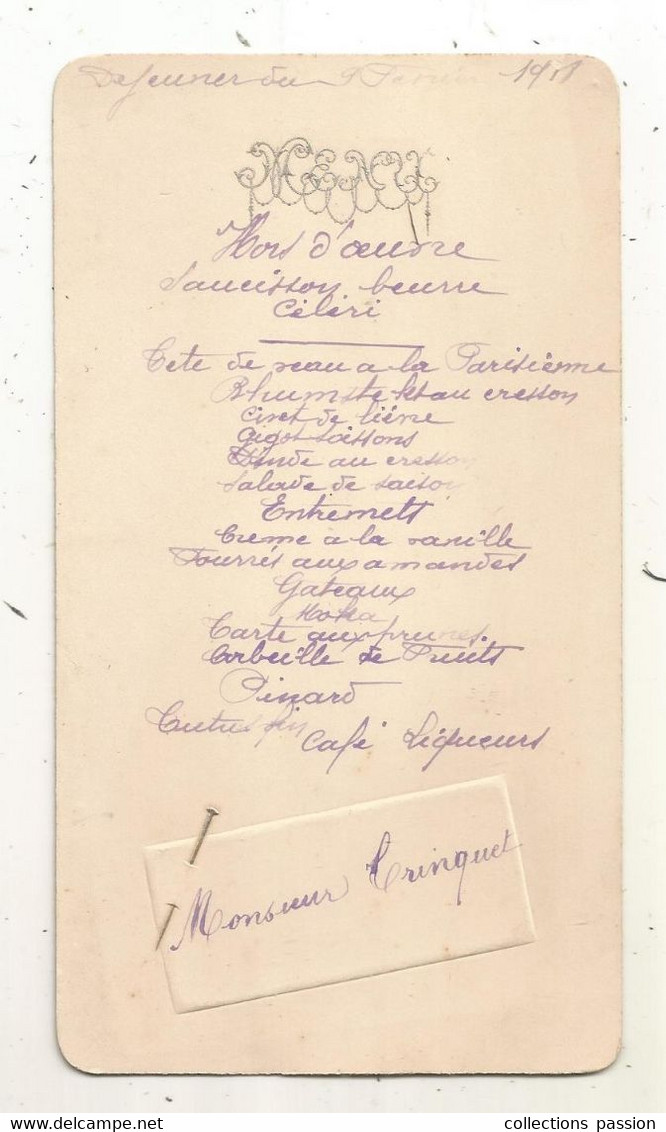 Dejeuner du 9 Fevrier 1911
MENU
Hors d'œuvre
Saucisson beurre
Céléri
Tete de veau a la Parisienne
Rhumstekt au cresson
Civet de lièvre
Gigot soissons
Dinde au cresson
Salade de saison
Entremett
Creme a la vanille
Fourrés aux amandes
Gateaux
Moka
Tarte aux prunes
Corbeille de Fruits
Pinard
Café Liqueurs
Monsieur Trinquet
collections passion